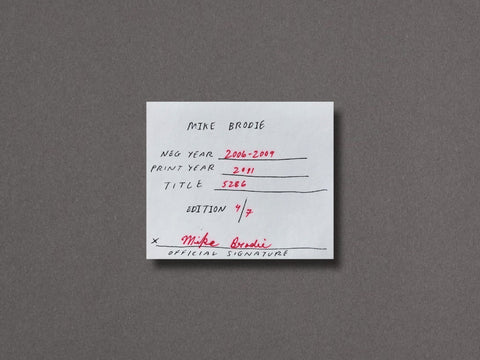 MIKE BRODIE
NEG YEAR 2006-2009
PRINT YEAR 2011
TITLE 5286
EDITION 4/7
X Mike Brodie
OFFICIAL SIGNATURE